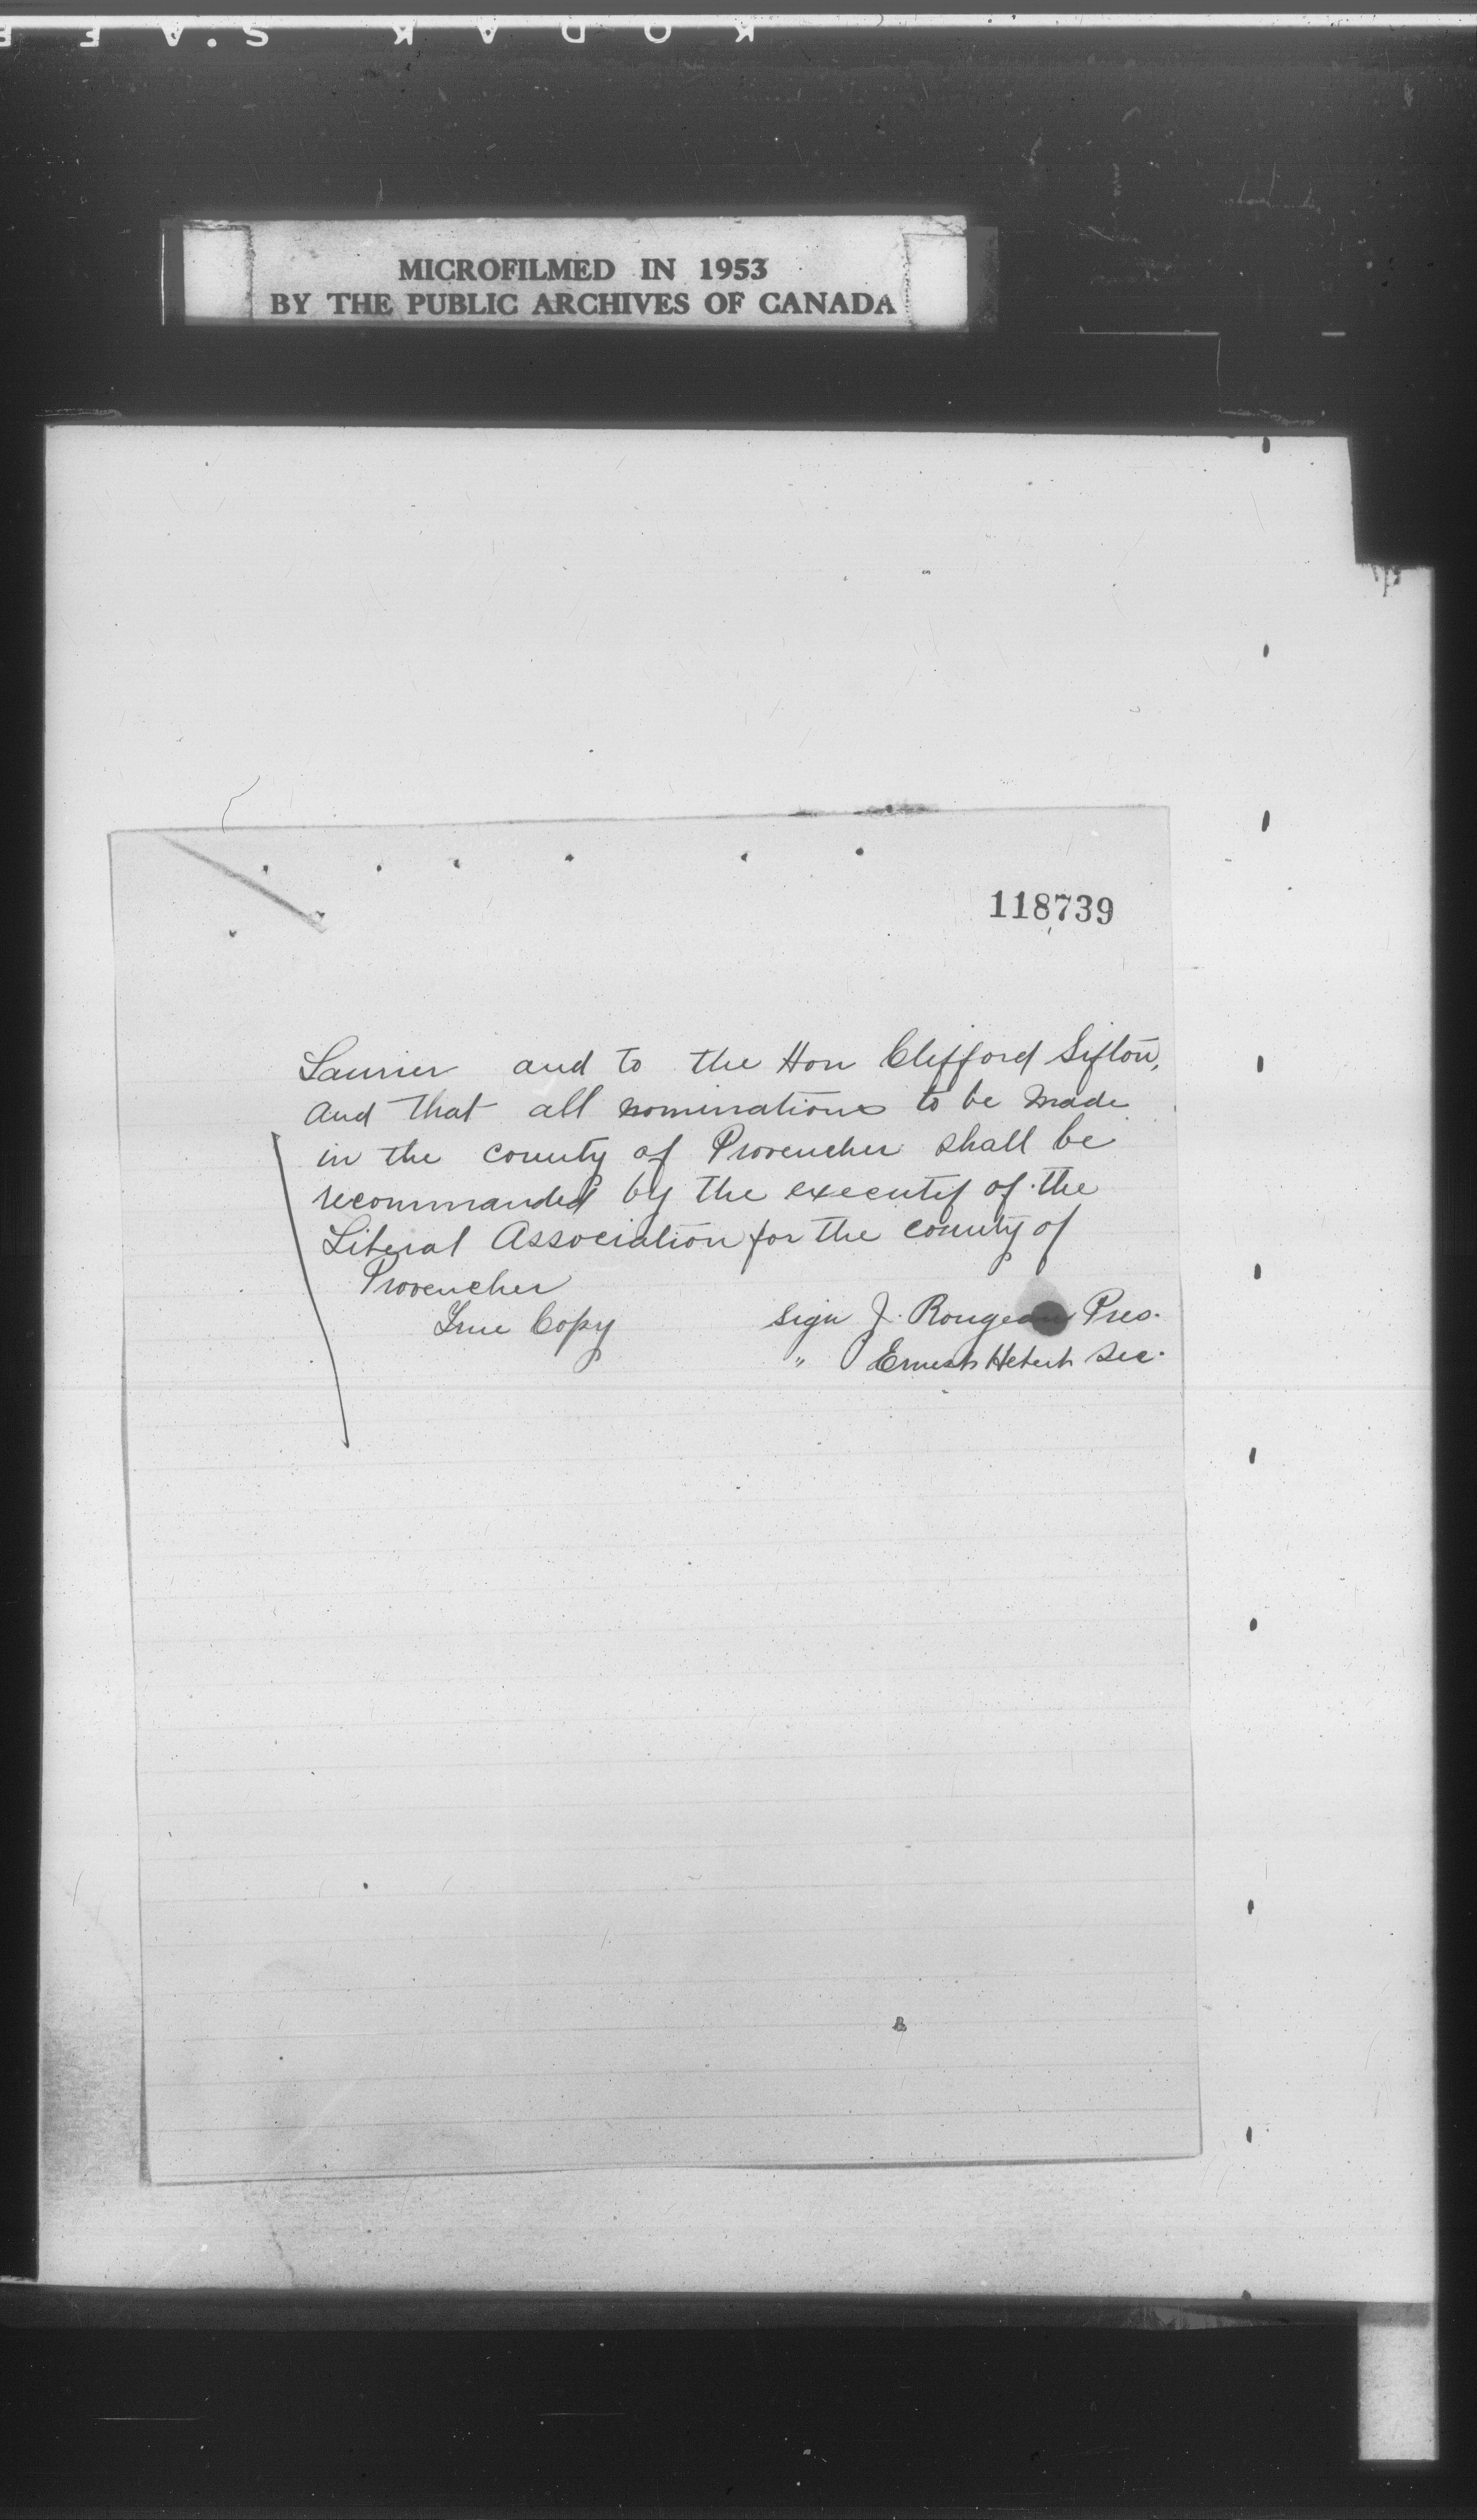 KODAK S.AFE
MICROFILMED IN 1953
BY THE PUBLIC ARCHIVES OF CANADA
118739
Laurier and to the Hon Clifford Sifton,
and that all nominations to be made
in the county of Provencher shall be
recommanded by the executif of the
Liberal Association for the county of
Provencher
True Copy
Sign J. Rougeau Pres.
" Ernest Hebert Sec.